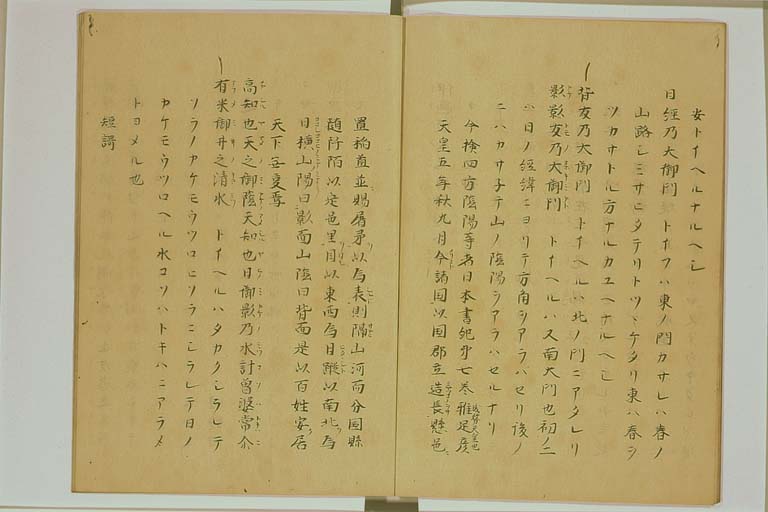 安トイヘルナルヘシ
日経乃大御門 トイフハ東ノ門カサレハ春ノ
山路シミサヒタテリトツヽケタリ東ハ春ヲ
ツカサトル方ナルカユヘナルヘシ
背友乃大御門 トイヘルハ北ノ門ニアタレリ
影友乃大御門 トイヘルハ又南大門也初ノ二
ハ日ノ経緯ニヨリテ方角ヲアラハセリ後ノ
ニハカサ子テ山ノ陰陽ヲアラハセルナリ
今検四方陰陽等者日本書紀第七巻稚足彦
天皇五年秋九月令諸国以国郡立造長縣邑
置稲置並賜盾矛以為表則隔山河而分国縣
随阡陌以定邑里因以東西為日縱以南北為
日横山陽曰影面山陰曰背面是以百姓安居
天下無事焉
高知也天之御蔭天知也日御影乃水計曽波常尓
有米御井之清水 トイヘルハタカクシラレテ
ソラノアケモウツロヒソラニシラレテ日ノ
カケモウツロヘル水コソハトキハニアラメ
トヨメル也
短謌